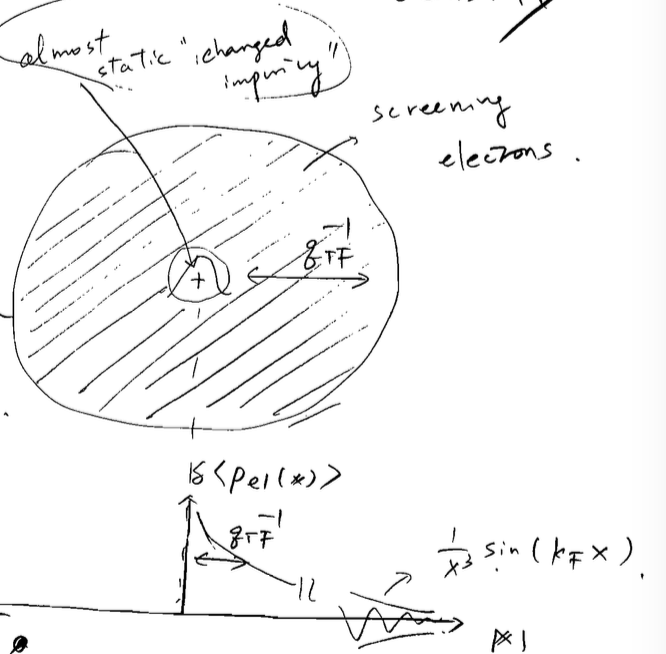 almost
static "charged
impurity"
screening
electrons.
q_{TF}^{-1}
+
δ<ρ_{el}(x)>
q_{TF}^{-1}
\frac{1}{x^3} sin(k_F x).
|x|